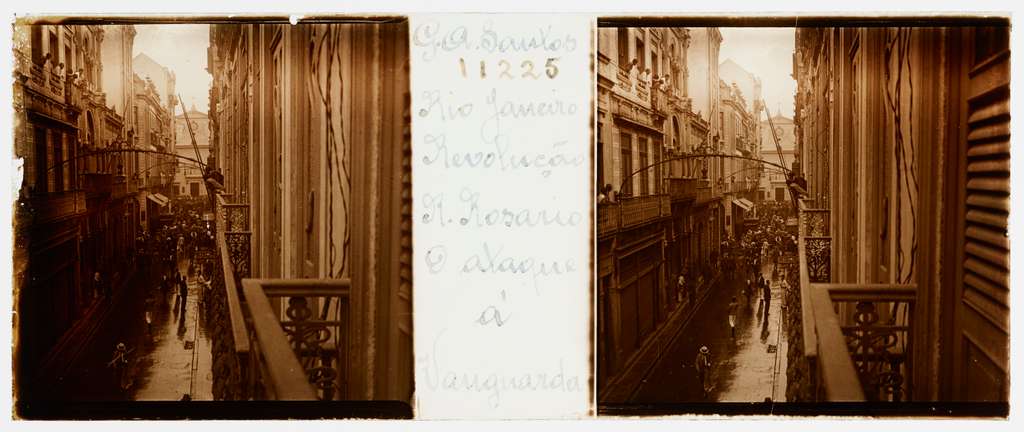 G.A. Santos
11225
Rio Janeiro
Revolução
R. Rosario
O ataque
á
Vanguarda